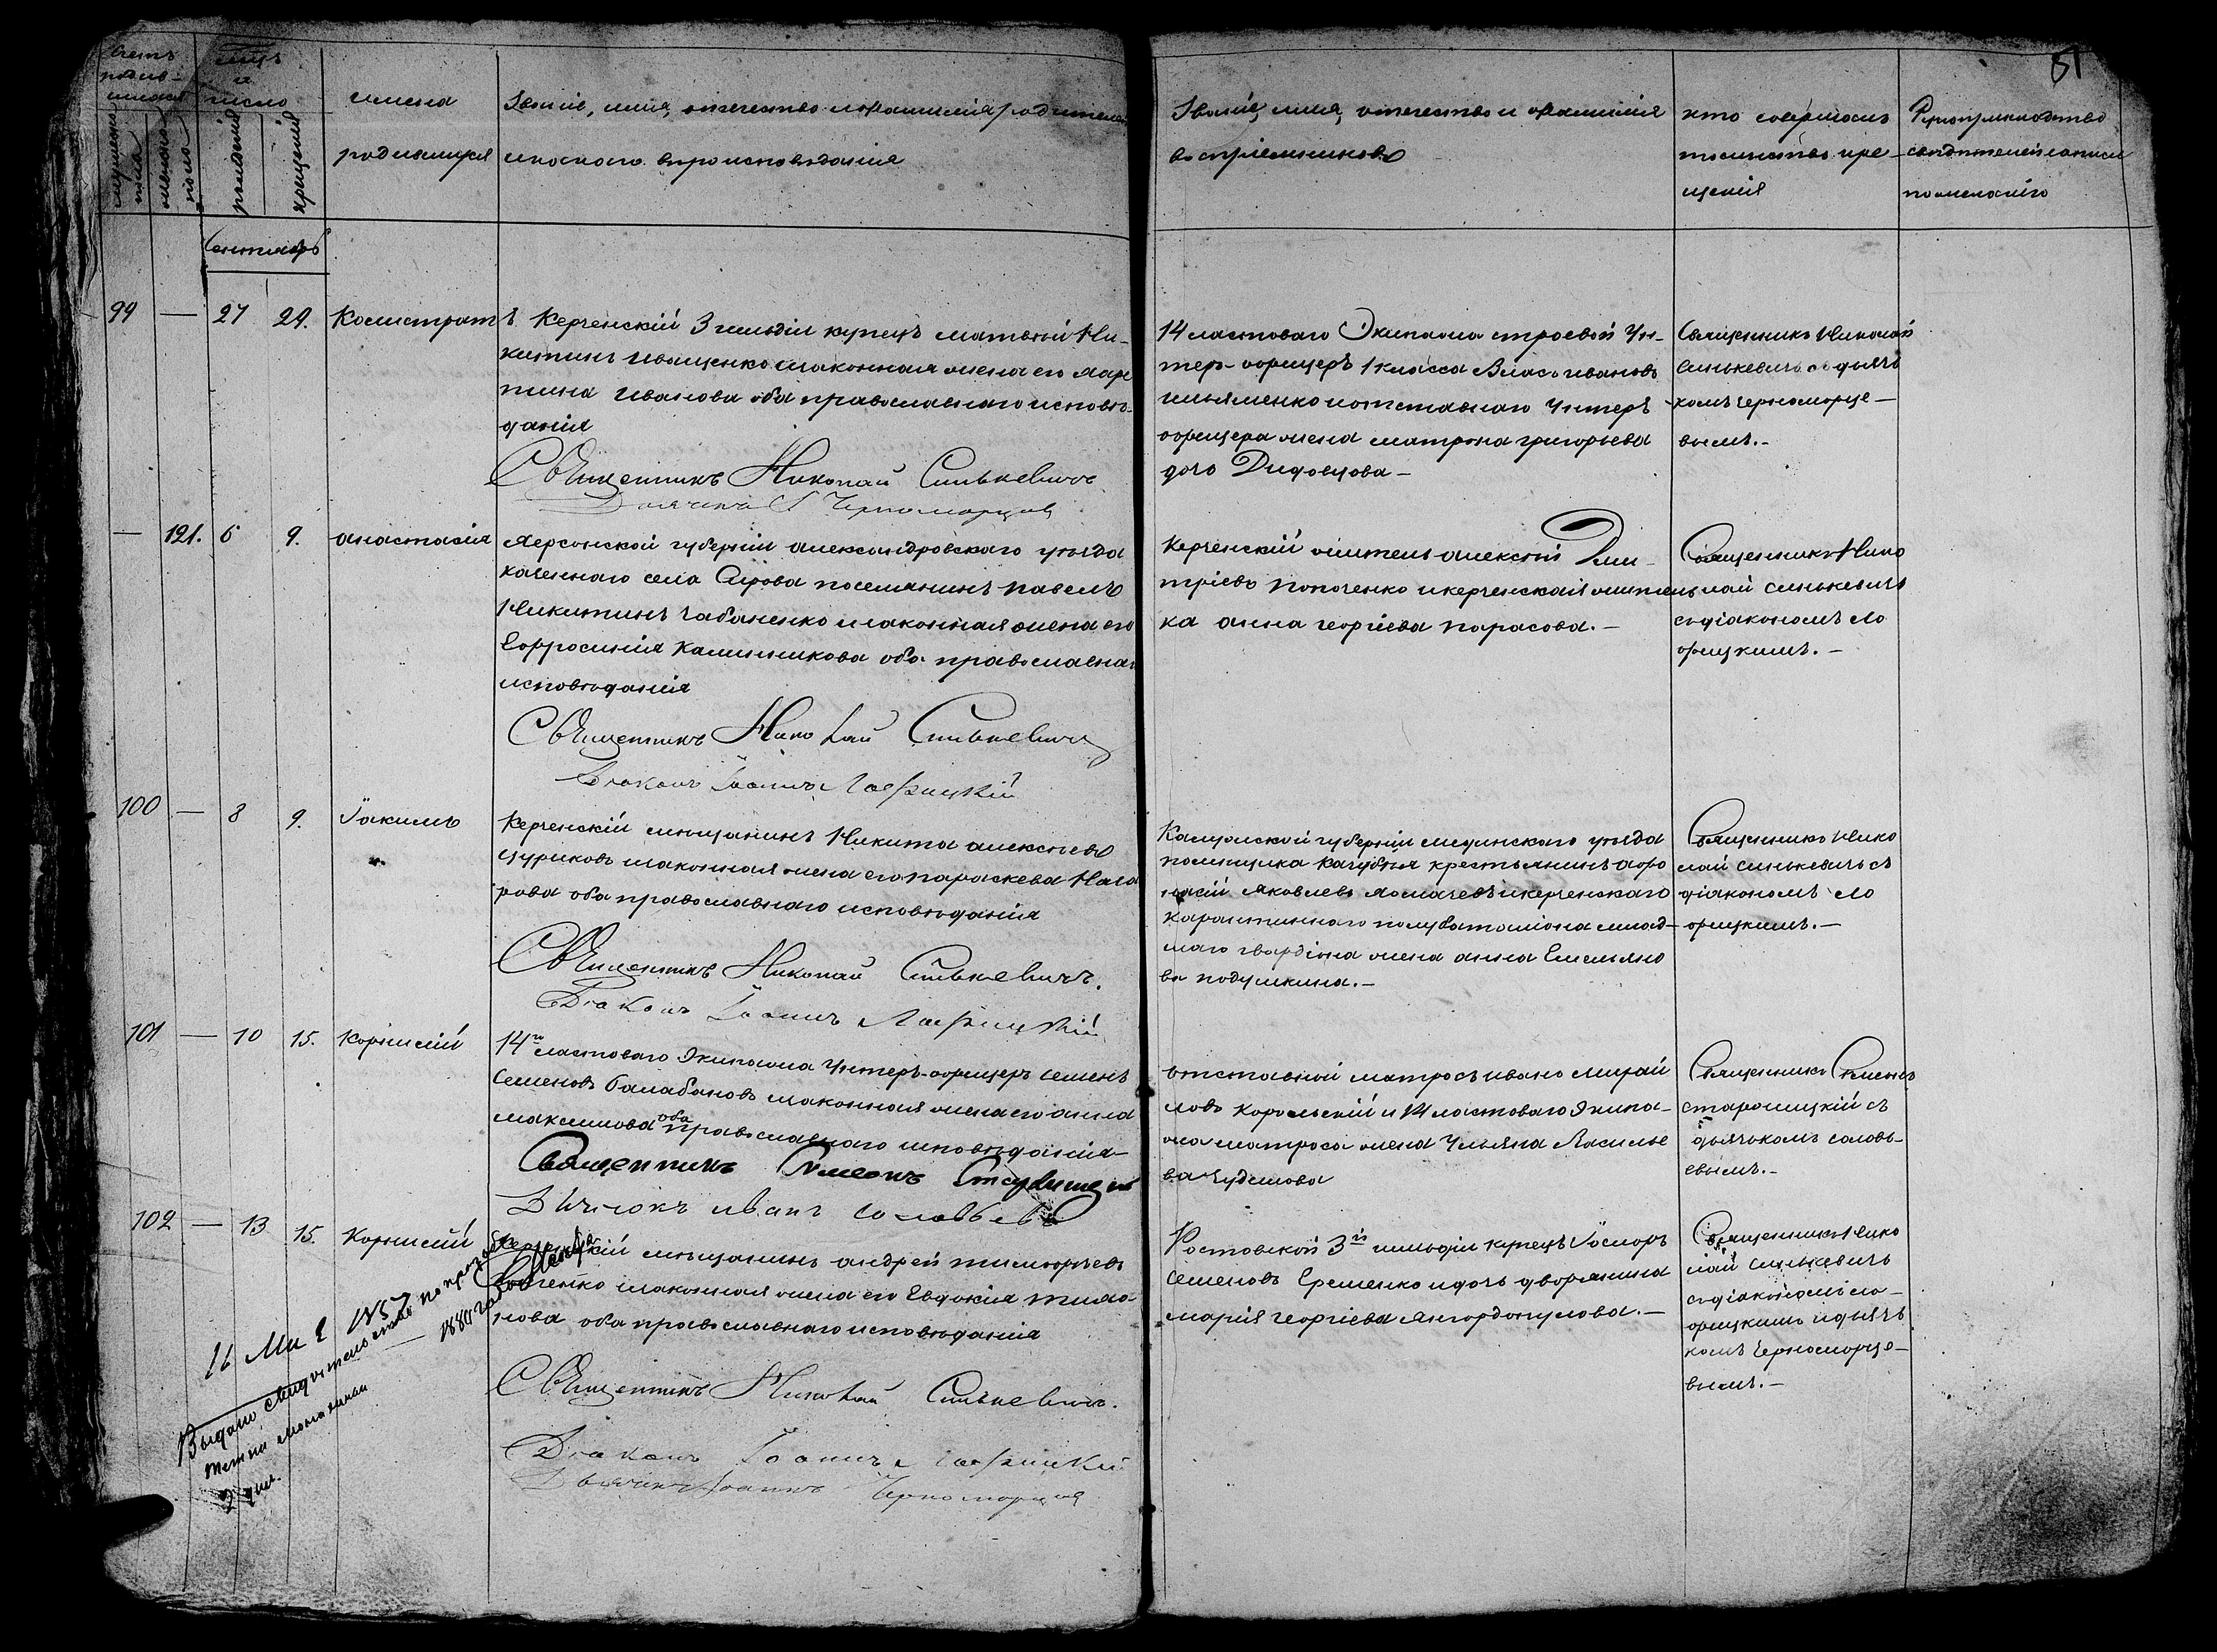 81
Счетъ родив-шихся
мужеска пола
женска пола
мцъ и число
рожденія
крещенія
имена родившихся
Званіе, имя, отечество и фамилія родителей
и какого вѣроисповѣданія
Званіе, имя, отечество и фамилія
воспріемниковъ
кто совершалъ
таинство кре-
щенія
Рукоприкладство
свидѣтелей записи
по желанію
Сентябрь
99 — 27 29. Калистратъ
Керченскій 3 гильдіи купецъ матвѣй Ни-
китинъ Иващенко и законная жена его Хари
тина Иванова оба православнаго исповѣ-
данія
Священникъ Николай Синькевичъ
Дьячекъ Черноморцовъ
14 ластоваго Экипажа строевой Ун-
теръ-офицеръ 1 класса Власъ ивановъ
ильяменко и отставнаго Унтеръ
офицера жена матрона григорьева
дочь Дидовцова —
Священникъ Николай
Синькевичъ съ дьяч
комъ Черноморце —
вымъ. -
— 121. 6 9. анастасія
Херсонской губерніи александровскаго уѣзда
казеннаго села поселянинъ павелъ
Никитинъ Чабаненко и законная жена его
Ефросинія Калинникова оба православнаго
исповѣданія
Священникъ Николай Синькевичъ
Діаконъ Іоаннъ Лофицкій
Керченскій житель алексѣй Дми-
тріевъ Попоченко и керченская житель
ка анна георгіева парасова. —
Священникъ Нико
лай Синькевичъ
съ діакономъ Ло
фицкимъ. —
100 — 8 9. Іакимъ
Керченскій мѣщанинъ Никита алексѣевъ
Цуриковъ и законная жена его параскева Наза
рова оба православнаго исповѣданія
Священникъ Николай Синькевичъ.
Діаконъ Іоаннъ Лофицкій
Калужской губерніи медынскаго уѣзда
помѣщика крестьянинъ афо
насій Яковлевъ и керченскаго
карантиннаго полубаталіона млад-
шаго гвардіона жена анна Емельяно
ва подушкина. —
Священникъ Нико
лай Синькевичъ съ
діакономъ Ло
фицкимъ. —
101 — 10 15. Корнилій
14го ластоваго Экипажа Унтеръ-офицеръ Семенъ
Семеновъ балабановъ и законная жена его анна
максимова оба православнаго исповѣданія —
Священникъ Симеонъ
Дьячокъ иванъ Соловьевъ
отставной матросъ иванъ михай
ловъ Корольскій и 14 ластоваго Экипа-
жа матроса жена Ульяна Васильe
ва Чудинова
Священникъ Симеонъ
съ
дьячькомъ соловь-
евымъ. -
102 — 13 15. Корнилій
Керченскій мѣщанинъ андрей тимофѣевъ
и законная жена его Евдокія
оба православнаго исповѣданія
Священникъ Николай Синькевичъ.
Діаконъ Іоаннъ Лофицкій
Дьячекъ Іоаннъ Черноморцовъ
Ростовской 3й гильдіи купецъ
Семеновъ Еременко и дочь дворянина
марія георгіева. —
Священникъ Нико
лай Синькевичъ
съ діакономъ Ло-
фицкимъ и дьяч
комъ Черноморце —
вымъ. —
Выдано свидѣтельство